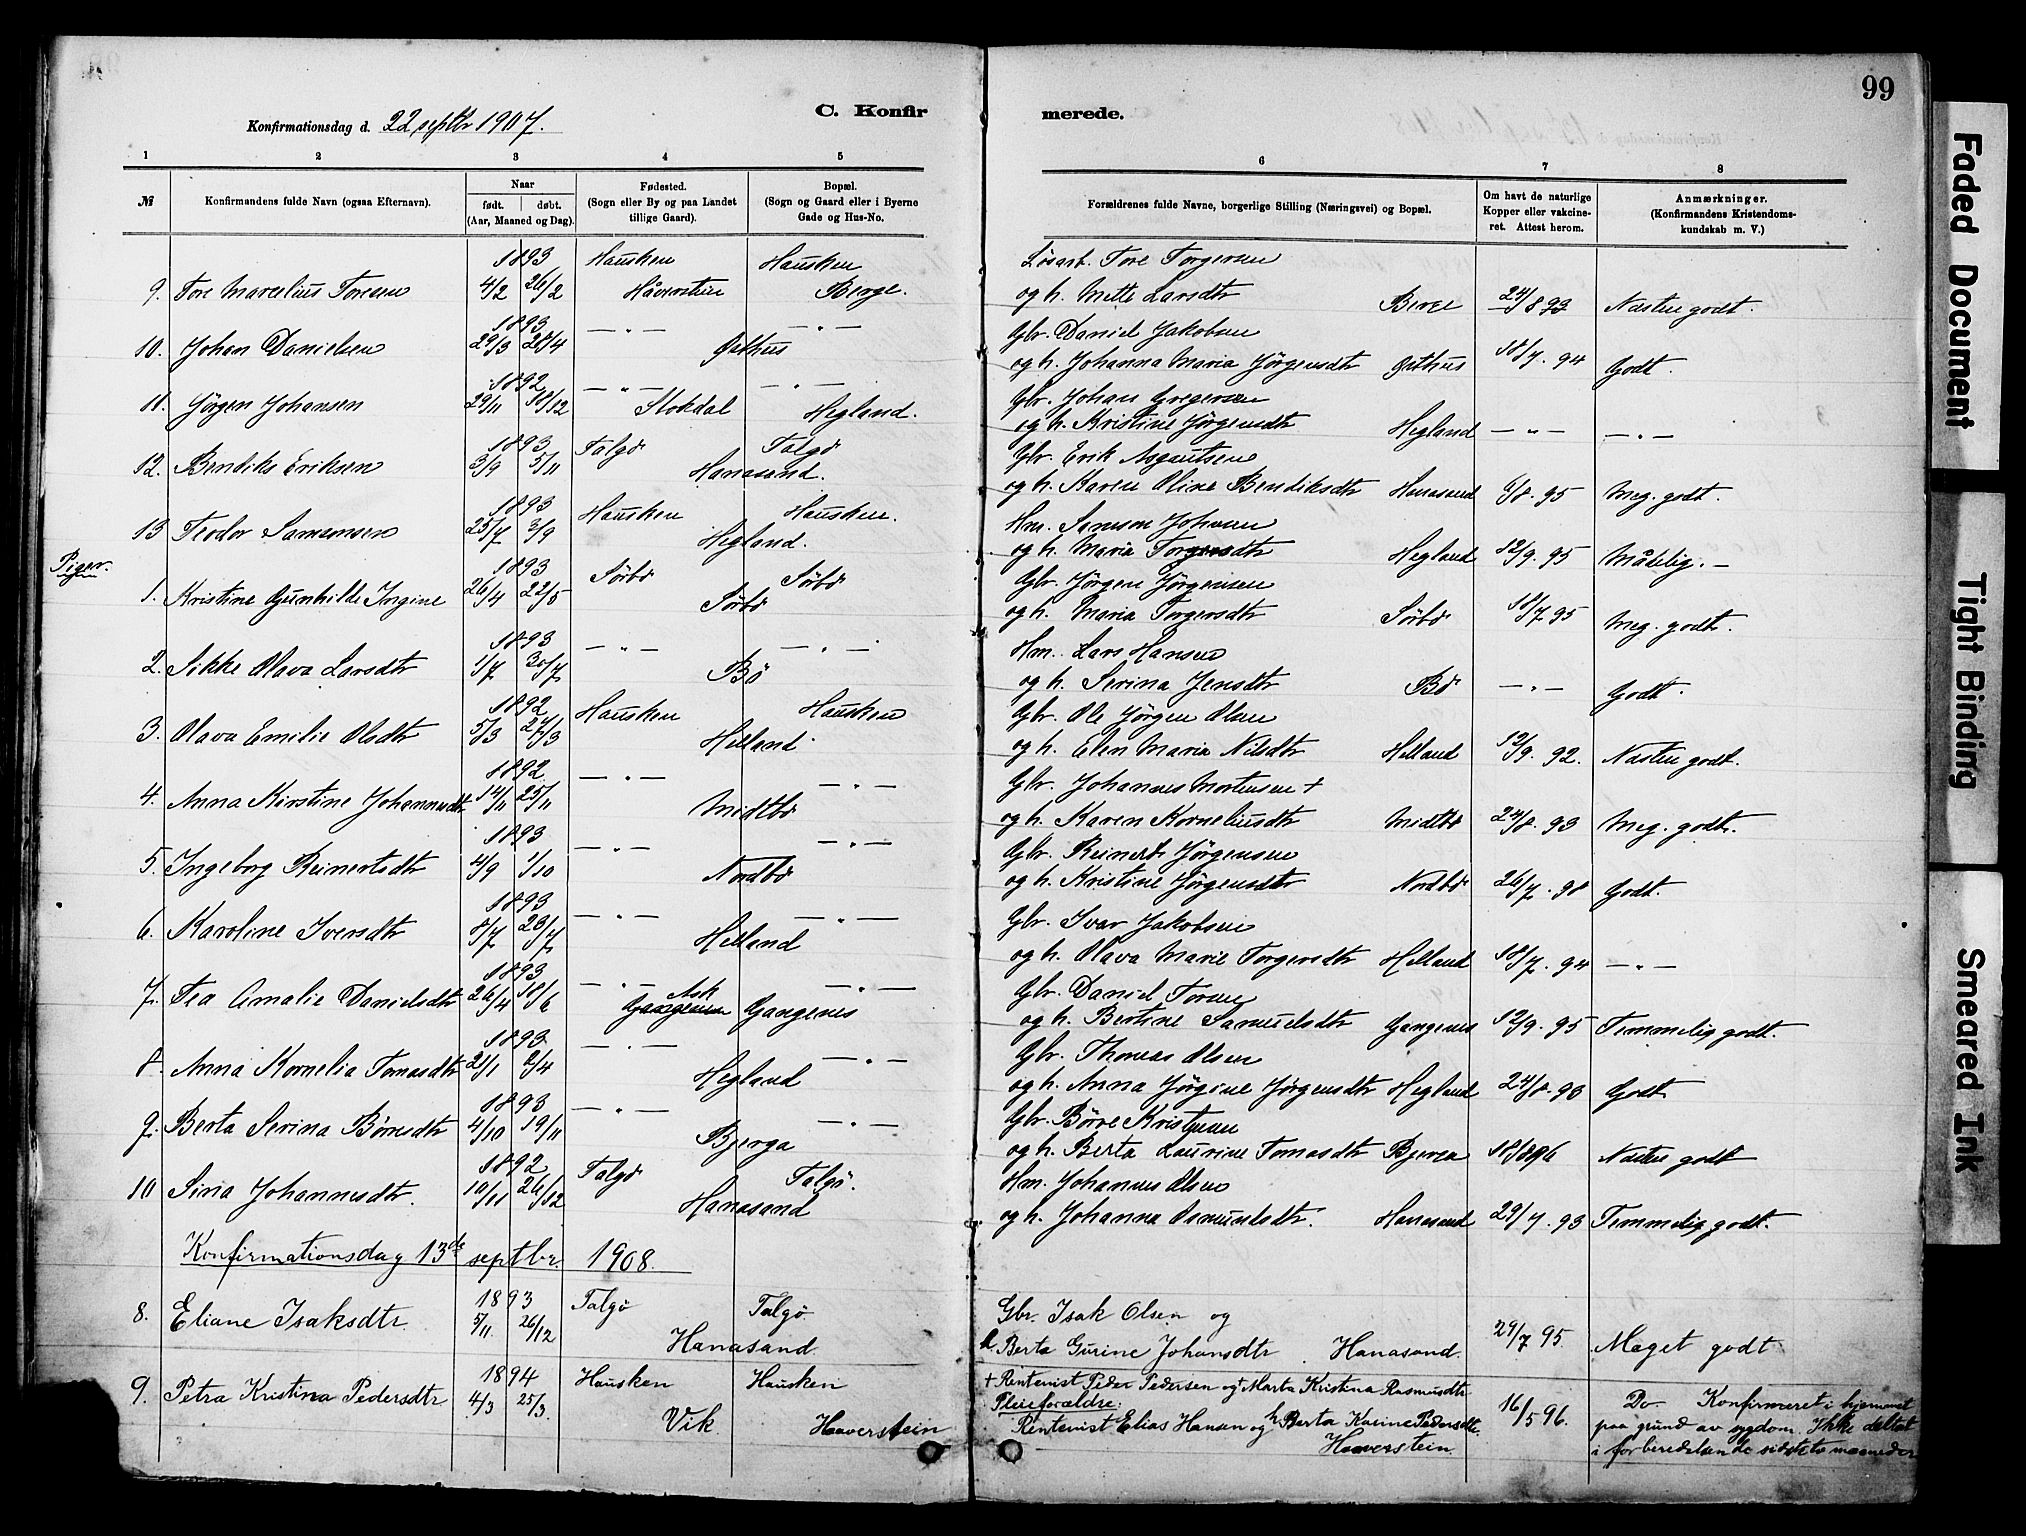 99
C. Konfirmerede.
Konfirmationsdag d. 22 septbr 1907.
1 2 3 4 5 6 7 8
№ Konfirmandens fulde Navn (ogsaa Efternavn). Naar født. døbt. (Aar, Maaned og Dag). Fødested. (Sogn eller By og paa Landet tillige Gaard). Bopæl. (Sogn og Gaard eller i Byerne Gade og Hus-No.
Forældrenes fulde Navne, borgerlige Stilling (Næringsvei) og Bopæl. Om havt de naturlige Kopper eller vakcineret. Attest herom. Anmærkninger. (Konfirmandens Kristendomskundskab m. V.)
1893 Hausken Hausken Løsarb. Tore Torgersen
9. Tore Marselius Toresen 4/2 26/2 Håverstein Berge. og h. Mette Larsdtr Berge 24/8 93 Næsten godt.
1893 — " — — " — Gbr. Daniel Jakobsen
10. Johan Danielsen 29/3 20/4 Østhus og h. Johanna Maria Jørgensdtr Østhus 18/7. 94 Godt.
1892 — " — — " — Gbr. Johan Gregersen
11. Jørgen Johansen 29/11 18/12 Stokdal Hegland. og h. Kristine Jørgensdtr Hegland — " — — " —
1893 Talgø Talgø Gbr. Erik Asgautsen
12. Bendiks Eriksen 3/9 5/11 Hanasand. og h. Karen Oline Bendiksdtr Hanasand 6/8. 95 Meg. godt.
1893 Hausken Hausken. Hm. Samson Johnsen
13 Teodor Samsonsen 25/7 3/9 Hegland. og h. Maria Torgersdtr Hegland 12/9. 95 Mådelig. —
Piger.
1893 Sörbø Sörbø Gbr. Jørgen Jørgensen
1. Kristine Gunhilde Ingine 26/4 22/5 Sörbø og h. Maria Torgersdtr Sörbø 18/7 95 Meg. godt.
1893 — " — — " — Hm. Lars Hansen
2. Sikke Olava Larsdtr 1/7 30/7 Bö og h. Serina Jensdtr Bö — " — Godt.
1892 Hausken Hausken Gbr. Ole Jørgen Olsen
3. Olava Emelie Olsdtr 5/3 27/3 Helland og h. Elen Maria Nilsdtr Helland 12/9. 92. Næsten godt.
1892 — " — — " — Gbr. Johannes Mortensen +
4. Anna Kirstine Johannesdtr 14/11 25/11 Midtbø og h. Karen Korneliusdtr Midtbø 24/8. 93 Meg. godt.
1893 — " — — " — Gbr. Reinert Jørgensen
5. Ingeborg Reinertsdtr 4/9 1/10 Nordbø og h. Kristine Jørgensdtr Nordbø 26/7. 98 Godt.
1893 — " — — " — Gbr. Ivar Jakobsen
6. Karoline Iversdtr 5/7 23/7 Helland og h. Olava Marie Torgersdtr Helland 18/7. 94 — " —
1893 — " — Ask — " — Gbr. Daniel Toresen
7. Tea Amalie Danielsdtr 26/4 18/6 Gangenes og h. Bertine Samuelsdtr Gangenes 12/9. 95 Temmelig godt.
1893 — " — — " — Gbr. Thomas Olsen
8. Anna Kornelia Tomasdtr 21/1 2/4 Hegland og h. Anna Jørgine Jørgensdtr Hegland 24/8. 93 Godt
1893 — " — — " — Gbr. Börre Kristensen
9. Berta Serina Börresdtr 4/10 19/11 Bjerga og h. Berta Laurine Tomasdtr Bjerga 18/8 96 Næsten godt
1892 Talgø Talgö. Hm. Johannes Olsen
10 Sina Johannesdtr. 10/11 26/12 Hanasand og h. Johanna Osmundsdtr. Hanasand 29/7. 93 Temmelig godt.
Konfirmationsdag 13de septbr. 1908.
1893 Talgö Talgö Gbr. Isak Olsen og
8. Eliane Isaksdtr. 5/11. 26/12 Hanasand. h Berta Gurine Johansdtr Hanasand. 29/7 95. Meget godt
1894 Hausken Hausken + Rentenist Peder Pedersen og + Marta Kristina Rasmusdtr
9. Petra Kristina Pedersdtr 4/3 25/3. Vik. Haaverstein Pleieforældre: 16/5 96. Do. Konfirmeret i hjemmet
Rentenist Elias Hansen og h Berta Karine Pedersdtr. paa grund av sygdom. Ikke deltat
Haaverstein i forberedelsen de sidste maaneder
Faded Document
Tight Binding
Smeared Ink